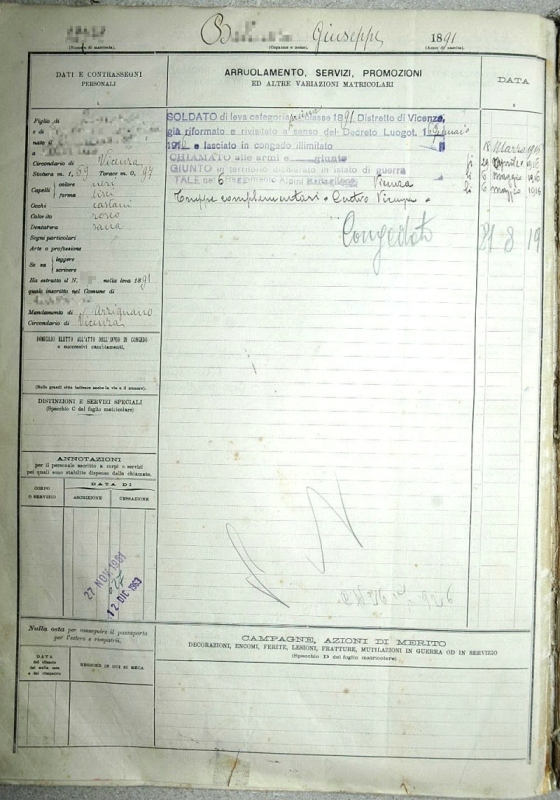 Giuseppe 1891
(Numero di matricola). (Cognome e nome). (Anno di nascita).
DATI E CONTRASSEGNI
PERSONALI
ARRUOLAMENTO, SERVIZI, PROMOZIONI
ED ALTRE VARIAZIONI MATRICOLARI
DATA
Figlio di
e di
nato il
a
Circondario di Vicenza
Statura m. 1, 69 Torace m. 0, 97
Capelli colore neri
forma lisci
Occhi castani
Colorito roseo
Dentatura sana
Segni particolari
Arte o professione
Se sa leggere
scrivere
Ha estratto il N. nella leva 1891
quale inscritto nel Comune di
Mandamento di Arzignano
Circondario di Vicenza
SOLDATO di leva categoria prima classe 1891 Distretto di Vicenza
già riformato e rivisitato a senso del Decreto Luogot.
e lasciato in congedo illimitato
CHIAMATO alle armi e giunto
GIUNTO in territorio dichiarato in istato di guerra
TALE nel 6 Reggimento Alpini Battaglione Vicenza
Congedato
21 8 19
DOMICILIO ELETTO ALL'ATTO DELL'INVIO IN CONGEDO
e successivi cambiamenti.
(Nelle grandi città indicare anche la via e il numero).
DISTINZIONI E SERVIZI SPECIALI
(Specchio C del foglio matricolare)
ANNOTAZIONI
per il personale ascritto a corpi o servizi
pei quali sono stabilite dispense dalla chiamata.
CORPO
O SERVIZIO
DATA DI
ASCRIZIONE
CESSAZIONE
27 NOV 1961
12 DIC 1963
Nulla osta per conseguire il passaporto
per l'estero e rimpatrii.
DATA
del rilascio
del nulla osta
e del rimpatrio
REGIONE IN CUI SI RECA
CAMPAGNE, AZIONI DI MERITO
DECORAZIONI, ENCOMI, FERITE, LESIONI, FRATTURE, MUTILAZIONI IN GUERRA OD IN SERVIZIO
(Specchio D del foglio matricolare)